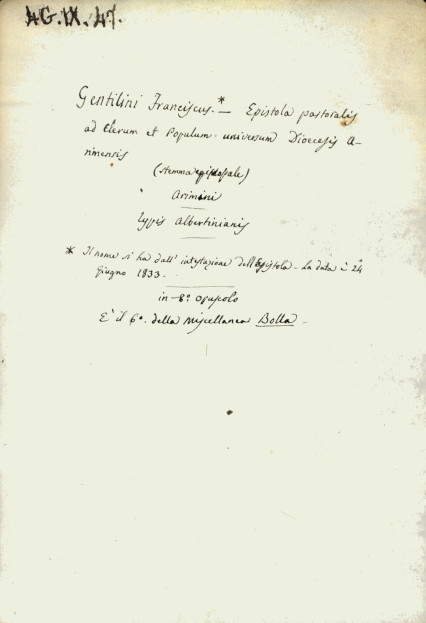 AG.IX.47.
Gentilini Franciscus.* — Epistola pastoralis
ad Clerum et Populum universum Dioecesis A-
riminensis
(stemma episcopale)
Arimini
typis Albertinianis
* Il nome si ha dall' intestazione dell'Epistola - La data è 24
Giugno 1833.
in-8° opuscolo
E' il 6°. della Miscellanea Bolla -